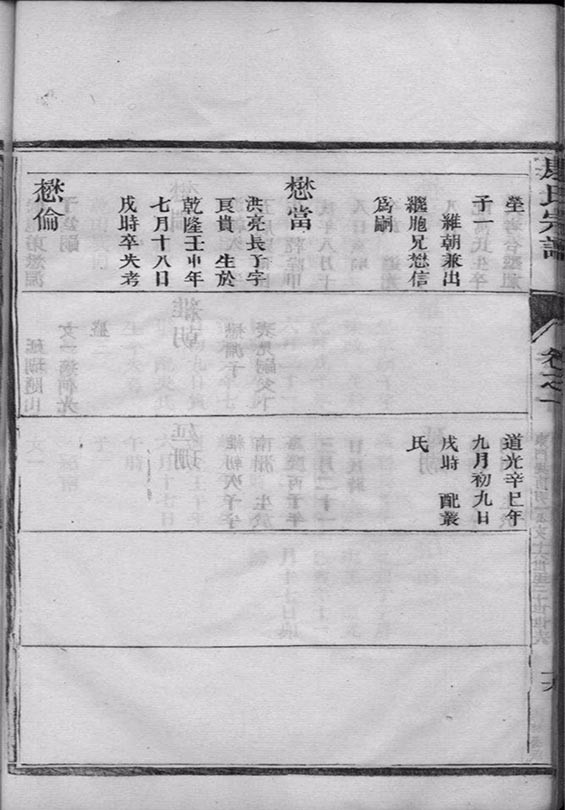 塋
子一
維朝兼出
繼胞兄懋信
爲嗣
懋當
洪亮長子字
貢貴 生於
乾隆壬申年
七月十八日
戌時卒失考
懋倫
道光辛巳年
九月初九日
戌時 配叢
氏
氏宗譜
卷之一